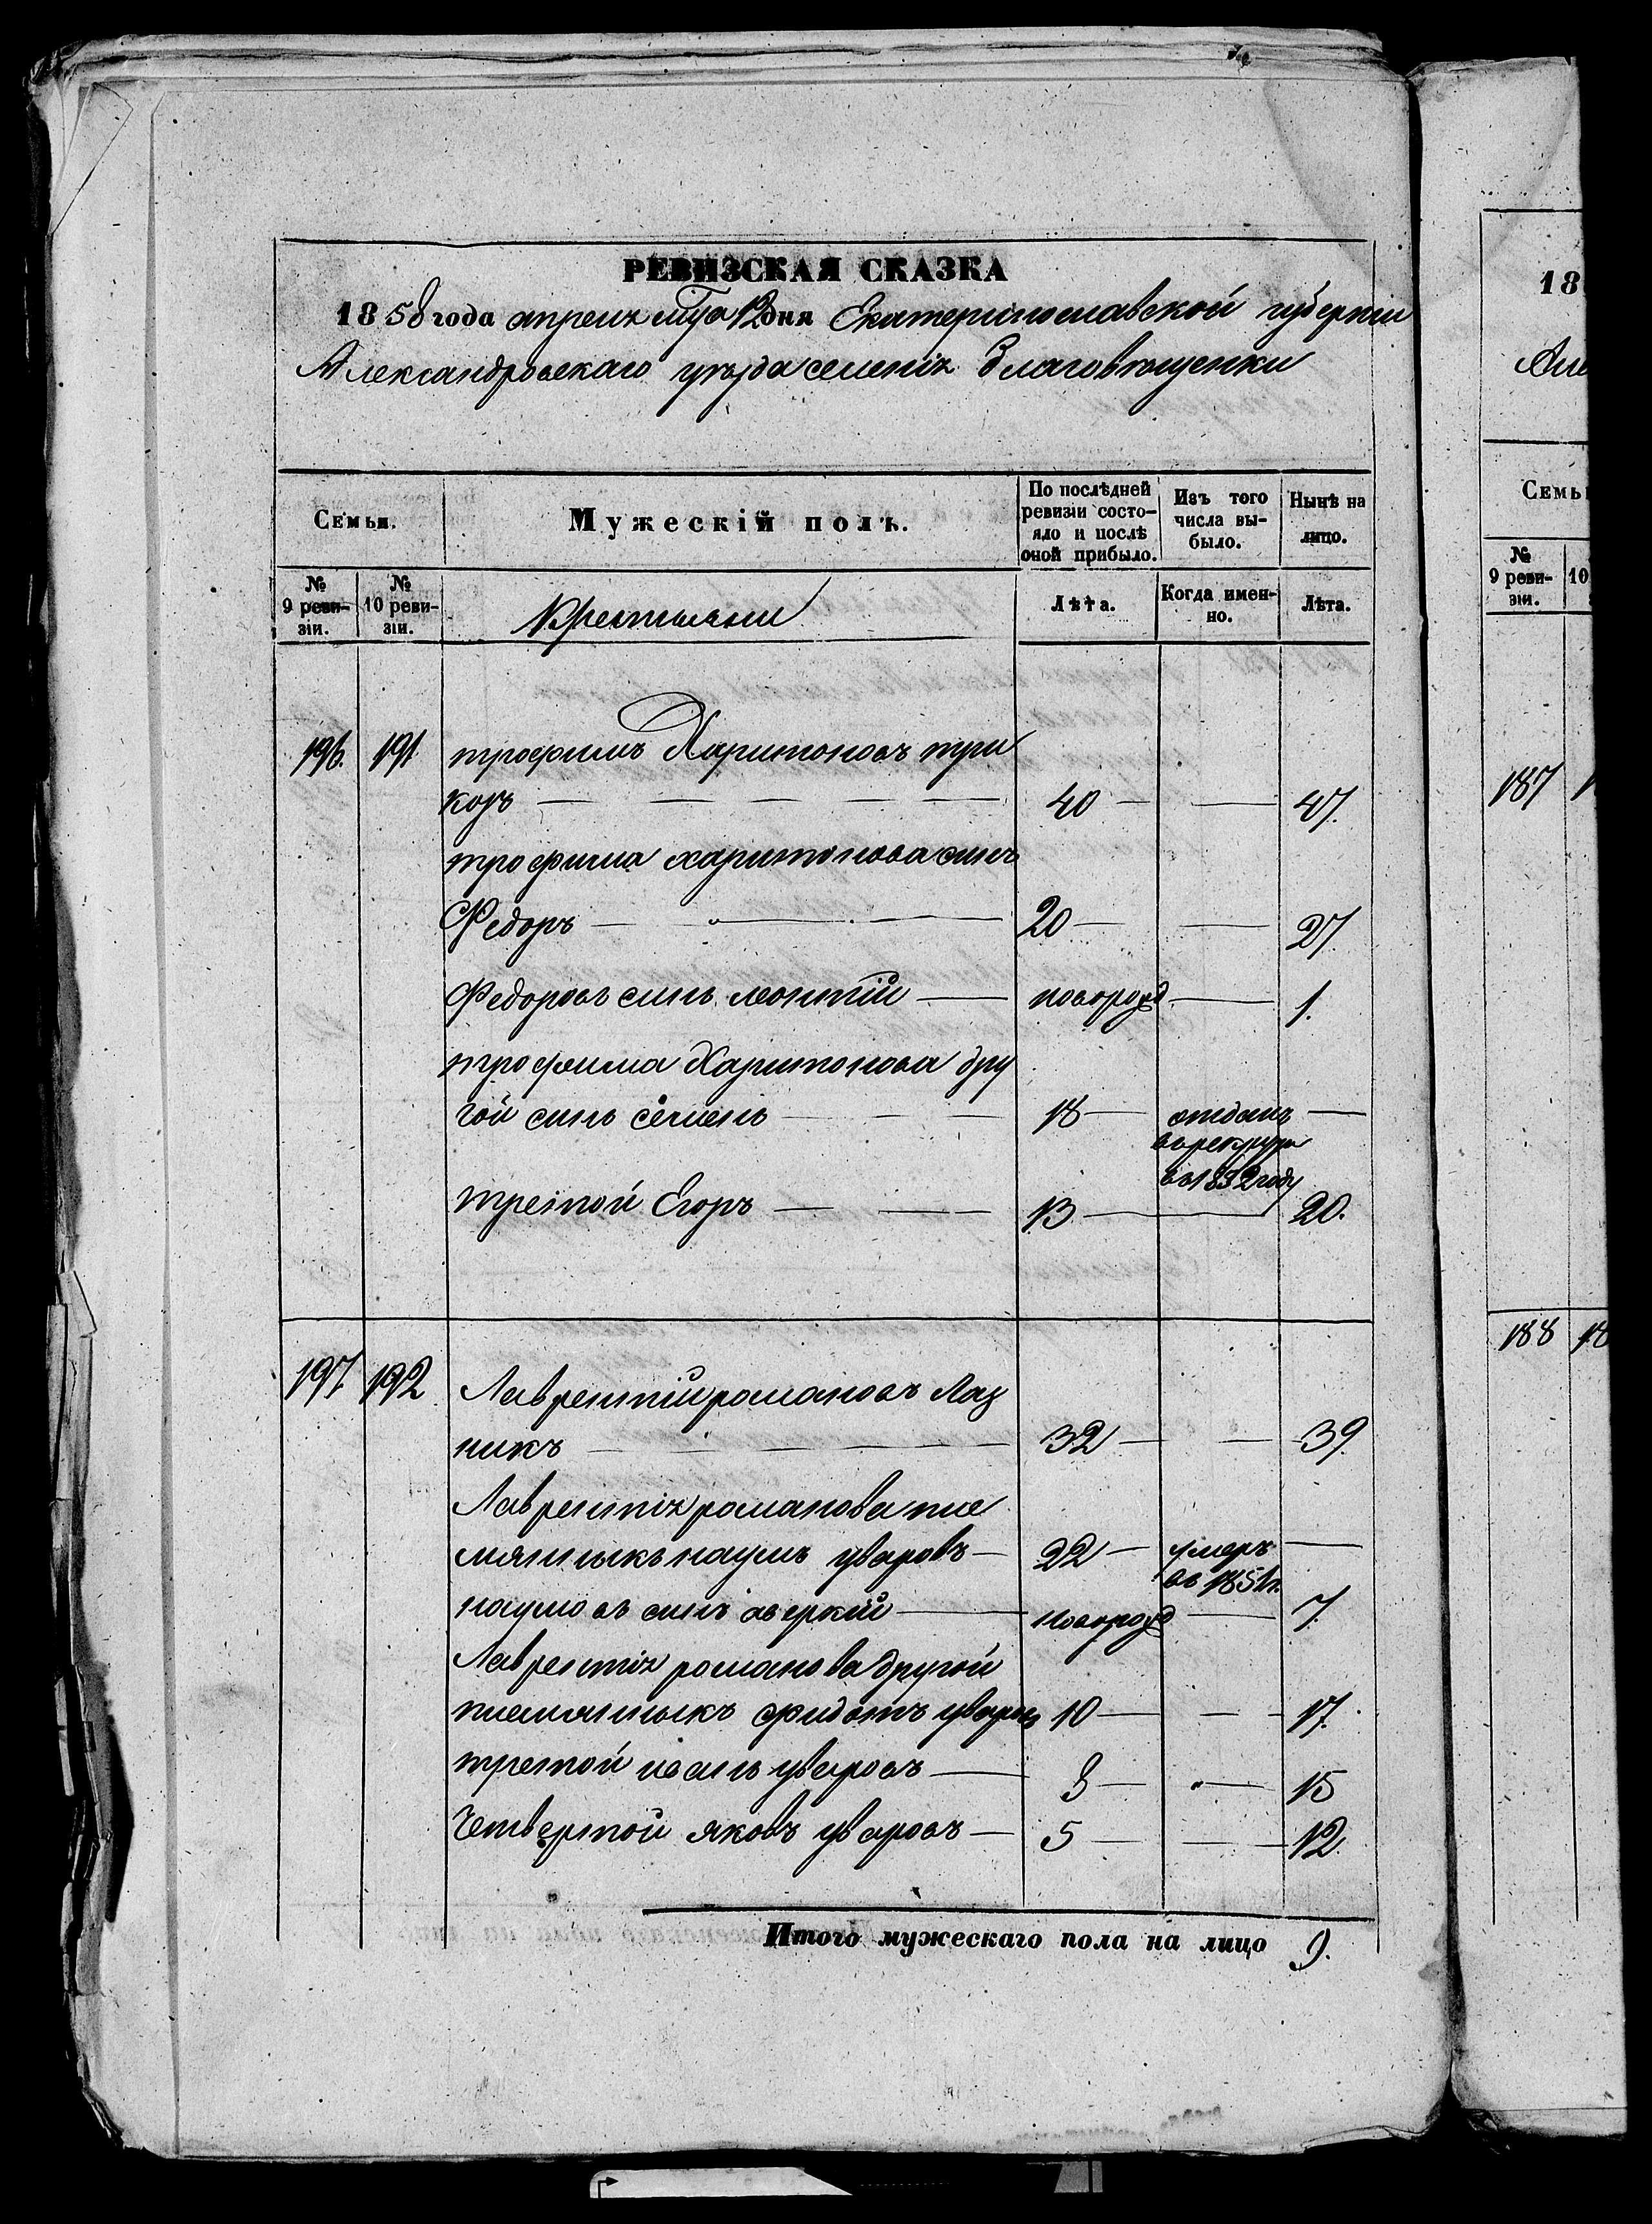 РЕВИЗСКАЯ СКАЗКА
1858 года апреля мца 12 дня Екатеринославской губернии
Александровскаго уѣзда селенія Благовѣщенки
Семьи.
Мужескій полъ.
По послѣдней ревизіи состо-
яло и послѣ
оной прибыло.
Изъ того
числа вы-
было.
Нынѣ на
лицо.
№
9 реви-
зіи.
№
10 реви-
зіи.
Крестьяни
Лѣта.
Когда имен-
но.
Лѣта.
196. 191 трофимъ Харитоновъ три
коръ 40 47.
трофима харитонова синъ
Федоръ 20 27.
Федоровъ синъ леонтій новорожд 1.
трофима Харитонова дру
гой синъ семенъ 18 отданъ
въ рекруты
въ 1852 году
третой Егоръ 13 20.
197. 192 Лаврентій романовъ Лаз
никъ 32 39.
Лаврентія романова пле
мянныкъ наумъ уваровъ 22 умеръ
въ 185 г.
наумовъ синъ аверкий новорожд 7.
Лаврентія романова другой
племянныкъ фидотъ уваровъ 10 17.
третой иванъ уваровъ 8 15
Четвертой яковъ уваровъ 5 12.
Итого мужескаго пола на лицо 9.
18
Але
Семьи
№
9 реви-
зіи.
10
187
188 18